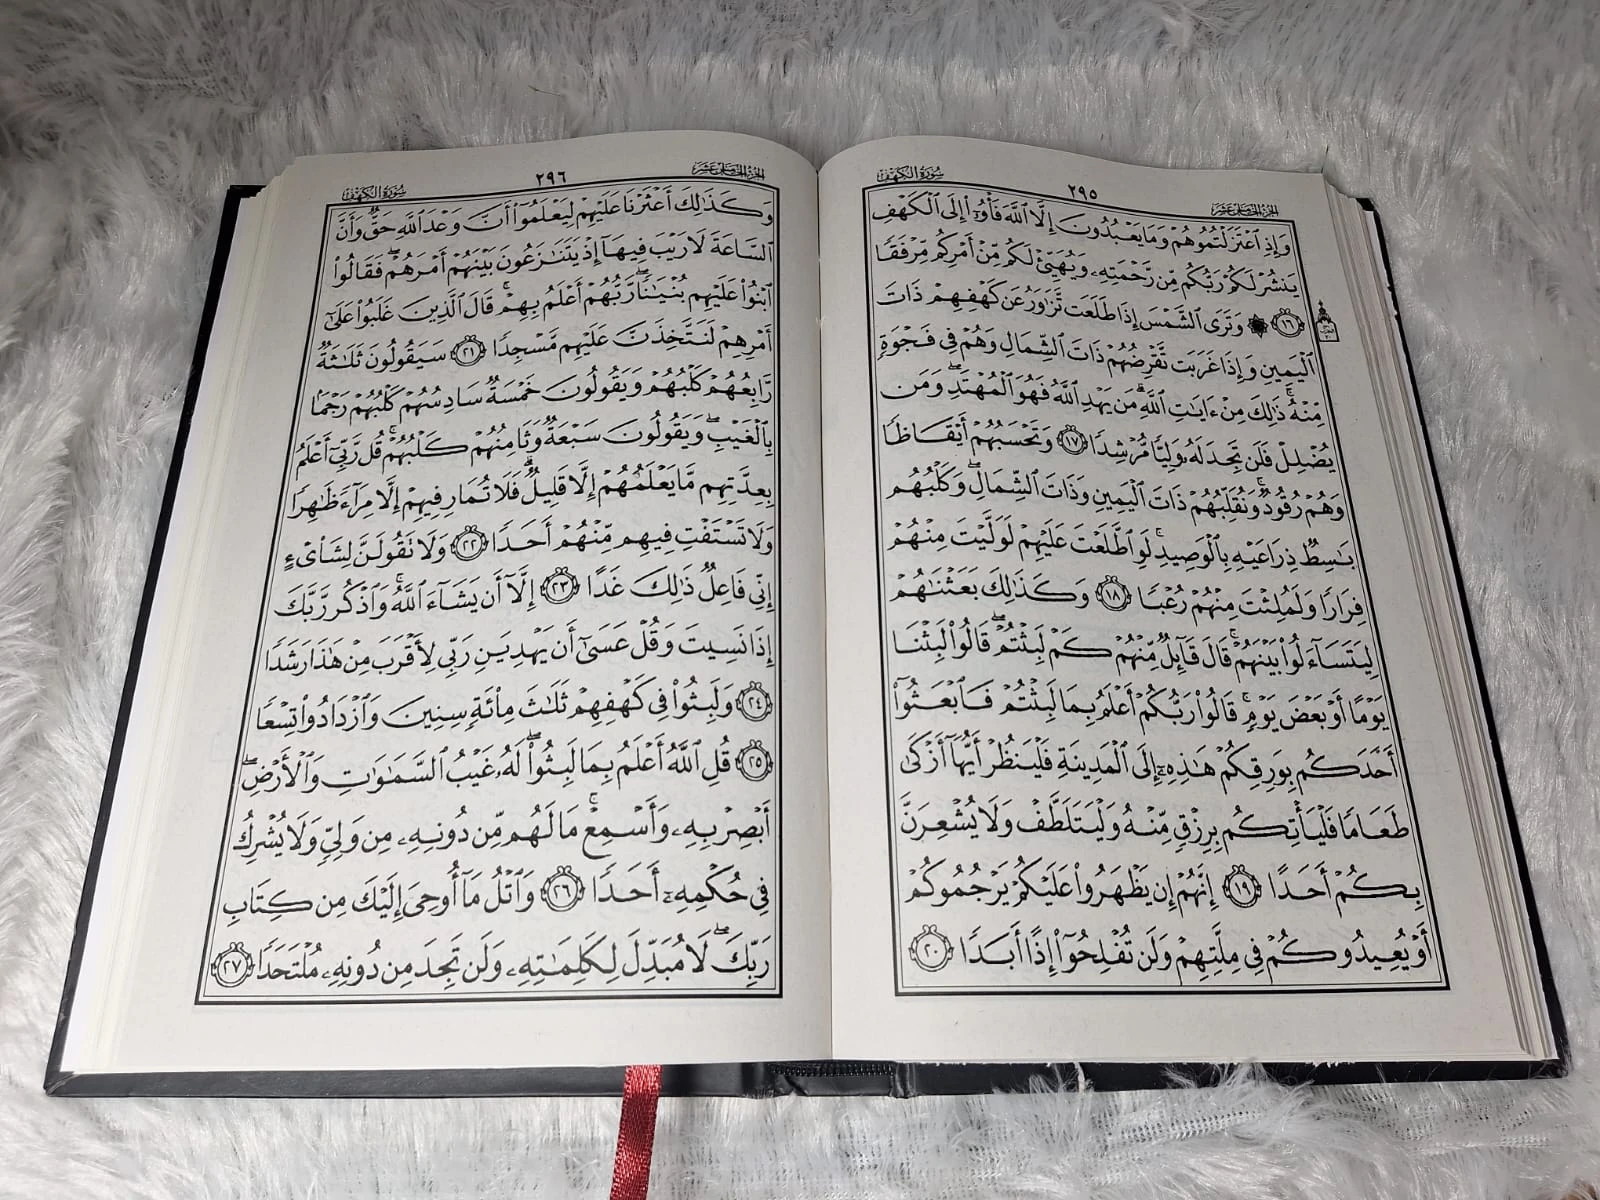 سُورَةُ الكَهْفِ
٢٩٥
الجُزءُ الخَامِسَ عَشَرَ
وَإِذِ ٱعۡتَزَلۡتُمُوهُمۡ وَمَا يَعۡبُدُونَ إِلَّا ٱللَّهَ فَأۡوُۥٓاْ إِلَى ٱلۡكَهۡفِ
يَنشُرۡ لَكُمۡ رَبُّكُم مِّن رَّحۡمَتِهِۦ وَيُهَيِّئۡ لَكُم مِّنۡ أَمۡرِكُم مِّرۡفَقٗا
١٦ ۞ وَتَرَى ٱلشَّمۡسَ إِذَا طَلَعَت تَّزَٰوَرُ عَن كَهۡفِهِمۡ ذَاتَ
ٱلۡيَمِينِ وَإِذَا غَرَبَت تَّقۡرِضُهُمۡ ذَاتَ ٱلشِّمَالِ وَهُمۡ فِي فَجۡوَةٖ
مِّنۡهُۚ ذَٰلِكَ مِنۡ ءَايَٰتِ ٱللَّهِۗ مَن يَهۡدِ ٱللَّهُ فَهُوَ ٱلۡمُهۡتَدِۖ وَمَن
يُضۡلِلۡ فَلَن تَجِدَ لَهُۥ وَلِيّٗا مُّرۡشِدٗا ١٧ وَتَحۡسَبُهُمۡ أَيۡقَاظٗا
وَهُمۡ رُقُودٞۚ وَنُقَلِّبُهُمۡ ذَاتَ ٱلۡيَمِينِ وَذَاتَ ٱلشِّمَالِۖ وَكَلۡبُهُم
بَٰسِطٞ ذِرَاعَيۡهِ بِٱلۡوَصِيدِۚ لَوِ ٱطَّلَعۡتَ عَلَيۡهِمۡ لَوَلَّيۡتَ مِنۡهُمۡ
فِرَارٗا وَلَمُلِئۡتَ مِنۡهُمۡ رُعۡبٗا ١٨ وَكَذَٰلِكَ بَعَثۡنَٰهُمۡ
لِيَتَسَآءَلُواْ بَيۡنَهُمۡۚ قَالَ قَآئِلٞ مِّنۡهُمۡ كَمۡ لَبِثۡتُمۡۖ قَالُواْ لَبِثۡنَا
يَوۡمًا أَوۡ بَعۡضَ يَوۡمٖۚ قَالُواْ رَبُّكُمۡ أَعۡلَمُ بِمَا لَبِثۡتُمۡ فَٱبۡعَثُوٓاْ
أَحَدَكُم بِوَرِقِكُمۡ هَٰذِهِۦٓ إِلَى ٱلۡمَدِينَةِ فَلۡيَنظُرۡ أَيُّهَآ أَزۡكَىٰ
طَعَامٗا فَلۡيَأۡتِكُم بِرِزۡقٖ مِّنۡهُ وَلۡيَتَلَطَّفۡ وَلَا يُشۡعِرَنَّ
بِكُمۡ أَحَدًا ١٩ إِنَّهُمۡ إِن يَظۡهَرُواْ عَلَيۡكُمۡ يَرۡجُمُوكُمۡ
أَوۡ يُعِيدُوكُمۡ فِي مِلَّتِهِمۡ وَلَن تُفۡلِحُوٓاْ إِذًا أَبَدٗا ٢٠
الجُزءُ الخَامِسَ عَشَرَ
٢٩٦
سُورَةُ الكَهْفِ
وَكَذَٰلِكَ أَعۡثَرۡنَا عَلَيۡهِمۡ لِيَعۡلَمُوٓاْ أَنَّ وَعۡدَ ٱللَّهِ حَقّٞ وَأَنَّ
ٱلسَّاعَةَ لَا رَيۡبَ فِيهَآ إِذۡ يَتَنَٰزَعُونَ بَيۡنَهُمۡ أَمۡرَهُمۡۖ فَقَالُواْ
ٱبۡنُواْ عَلَيۡهِم بُنۡيَٰنٗاۖ رَّبُّهُمۡ أَعۡلَمُ بِهِمۡۚ قَالَ ٱلَّذِينَ غَلَبُواْ عَلَىٰٓ
أَمۡرِهِمۡ لَنَتَّخِذَنَّ عَلَيۡهِم مَّسۡجِدٗا ٢١ سَيَقُولُونَ ثَلَٰثَةٞ
رَّابِعُهُمۡ كَلۡبُهُمۡ وَيَقُولُونَ خَمۡسَةٞ سَادِسُهُمۡ كَلۡبُهُمۡ رَجۡمَۢا
بِٱلۡغَيۡبِۖ وَيَقُولُونَ سَبۡعَةٞ وَثَامِنُهُمۡ كَلۡبُهُمۡۚ قُل رَّبِّيٓ أَعۡلَمُ
بِعِدَّتِهِم مَّا يَعۡلَمُهُمۡ إِلَّا قَلِيلٞۗ فَلَا تُمَارِ فِيهِمۡ إِلَّا مِرَآءٗ ظَٰهِرٗا
وَلَا تَسۡتَفۡتِ فِيهِم مِّنۡهُمۡ أَحَدٗا ٢٢ وَلَا تَقُولَنَّ لِشَاْيۡءٍ
إِنِّي فَاعِلٞ ذَٰلِكَ غَدًا ٢٣ إِلَّآ أَن يَشَآءَ ٱللَّهُۚ وَٱذۡكُر رَّبَّكَ
إِذَا نَسِيتَ وَقُلۡ عَسَىٰٓ أَن يَهۡدِيَنِ رَبِّي لِأَقۡرَبَ مِنۡ هَٰذَا رَشَدٗا
٢٤ وَلَبِثُواْ فِي كَهۡفِهِمۡ ثَلَٰثَ مِاْئَةٖ سِنِينَ وَٱزۡدَادُواْ تِسۡعٗا
٢٥ قُلِ ٱللَّهُ أَعۡلَمُ بِمَا لَبِثُواْۖ لَهُۥ غَيۡبُ ٱلسَّمَٰوَٰتِ وَٱلۡأَرۡضِۖ
أَبۡصِرۡ بِهِۦ وَأَسۡمِعۡۚ مَا لَهُم مِّن دُونِهِۦ مِن وَلِيّٖ وَلَا يُشۡرِكُ
فِي حُكۡمِهِۦٓ أَحَدٗا ٢٦ وَٱتۡلُ مَآ أُوحِيَ إِلَيۡكَ مِن كِتَابِ
رَبِّكَۖ لَا مُبَدِّلَ لِكَلِمَٰتِهِۦ وَلَن تَجِدَ مِن دُونِهِۦ مُلۡتَحَدٗا ٢٧